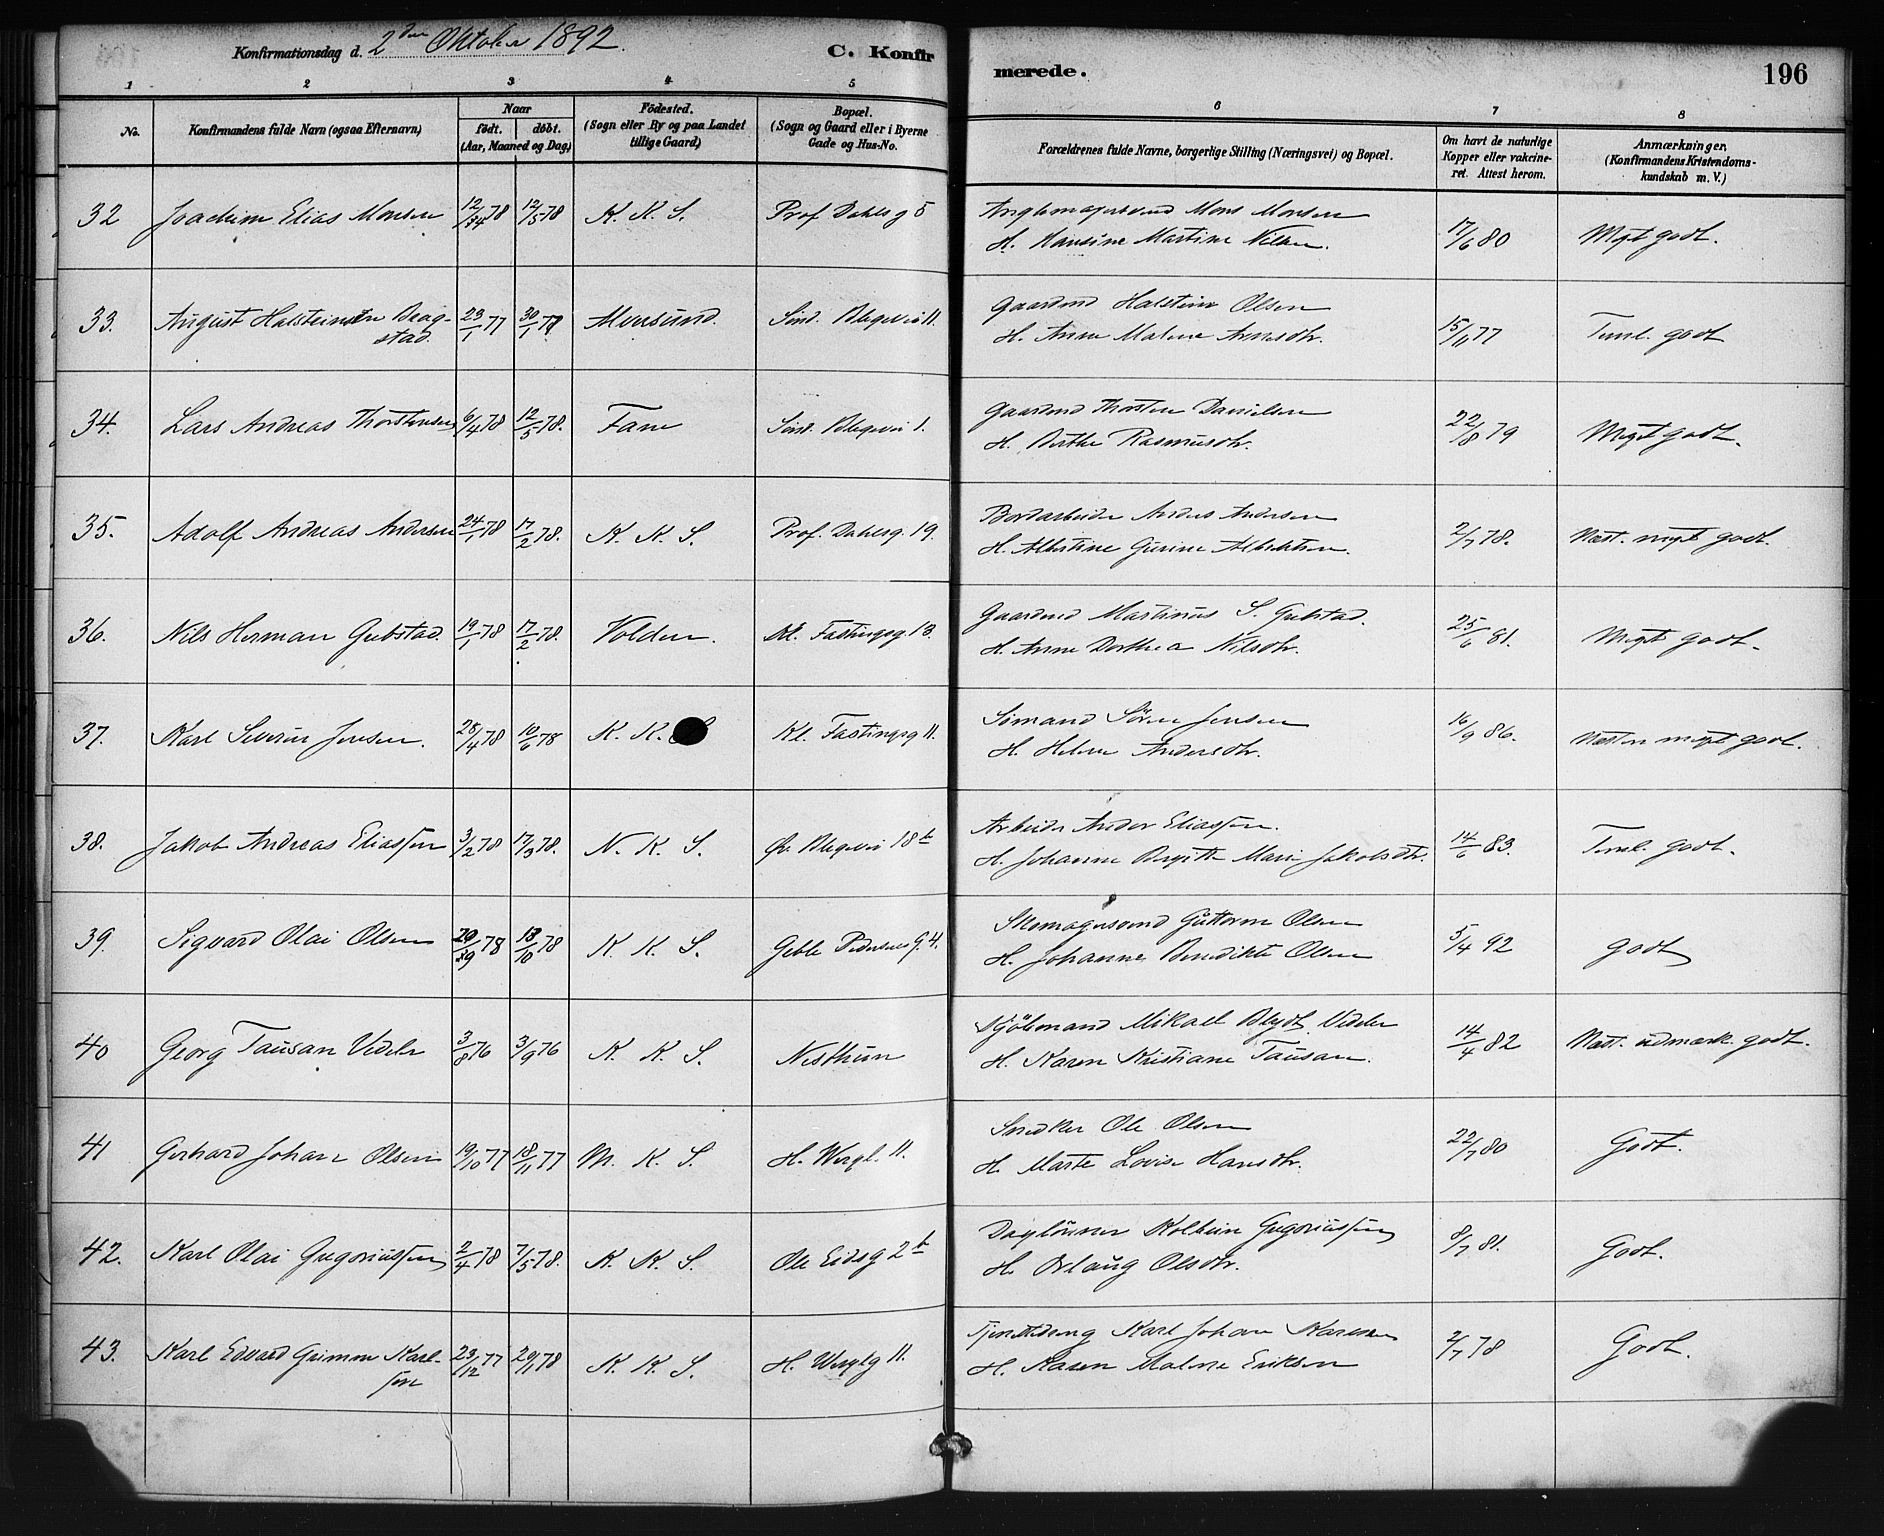 Konfirmationsdag d. 2den Oktober 1892.
C. Konfirmerede.
196
1 2 3 4 5 6 7 8
No.
Konfirmandens fulde Navn (ogsaa Efternavn)
Naar født. døbt. (Aar, Maaned og Dag)
Fødested. (Sogn eller By og paa Landet tillige Gaard)
Bopæl. (Sogn og Gaard eller i Byerne Gade og Hus-No.
Forældrenes fulde Navne, borgerlige Stilling (Næringsvei) og Bopæl.
Om havt de naturlige Kopper eller vakcineret. Attest herom.
Anmærkninger, (Konfirmandens Kristendomskundskab m. V.)
32 Joachim Elias Monsen 12/5 78 K. K. S. Prof Dahlsg 5 Mons Monsen 17/6 80 Mgt godt.
H. Hansine Martine Nilsen.
33. August Halsteinsen Dragstad. 23/1 77 30/1 77 Sind. Blegevei 11. Gaardmd Halstein Olsen 15/11 77 Teml. godt
H. Anne Malene Arnesdtr.
34. Lars Andreas Thorstensen 6/4 78 12/5 78. Fane Sind. Blegevei 1. Gaardmd Thorsten Danielsen 22/8 79 Meget godt.
H. Berthe Rasmusdtr.
35. Adolf Andreas Andersen 24/1 78 17/2 78. K. K. S. Prof. Dahlsg. 19. Bordarbeider Anders Andersen 2/7 78. Næst. mgt godt.
H. Albertine Gurine Albertsen.
36. Nils Herman Gubstad. 19/1 78 17/2 78. Volden. Kl. Fastingsg. 13. Gaardmd Martinus S. Gubstad. 25/6 81. Meget godt.
H. Anne Dorthea Nilsdtr.
37. Karl Severin Jensen. 28/4 78 10/6 78 K. K. Kl. Fastingsg 11. Sömand Sören Jensen 16/9 86. Næsten meget godt.
H. Helene Andersdtr.
38. Jakob Andreas Eliassen 3/2 78 17/3 78. N. K. S. Øv. Blegevei 18b Arbeider Andor Eliassen. 14/6 83. Teml. godt.
H. Johanne Birgitte Marie Jakobsdtr.
39. Sigvard Olai Olsen 13/10 78 K. K. S. Geble Pedersens G. 4. Skomagersvend Guttorm Olsen 5/4 92 godt
H. Johanne Benedikte Olsen
40 Georg Tausan Vedeler 3/8 76 3/9 76 K. K. S. Nesttun Mikael Blydt Vedeler 14/4 82 Næst. udmærk. godt.
H. Karen Kristiane Tausan.
41 Gerhard Johan Olsen 19/10 77 18/11 77 M. K. S. H. Wergl. 11. Snedker Ole Olsen 22/7 80 Godt.
H. Marte Lovise Hansdtr.
42. Karl Olai Gregoriussen 2/4 78 7/5 78. K. K. S. Ole Eidsg 2b Daglönner Kolbein Gregoriussen 8/7 81. Godt.
H. Orlaug Olsdtr.
43. Karl Edvard Grimm Karlsen 23/12 77 20/1 78 K. K. S. H. Werglg 11. Karl Johan Karlsen 2/7 78 Godt.
H. Karen Malene Eriksen